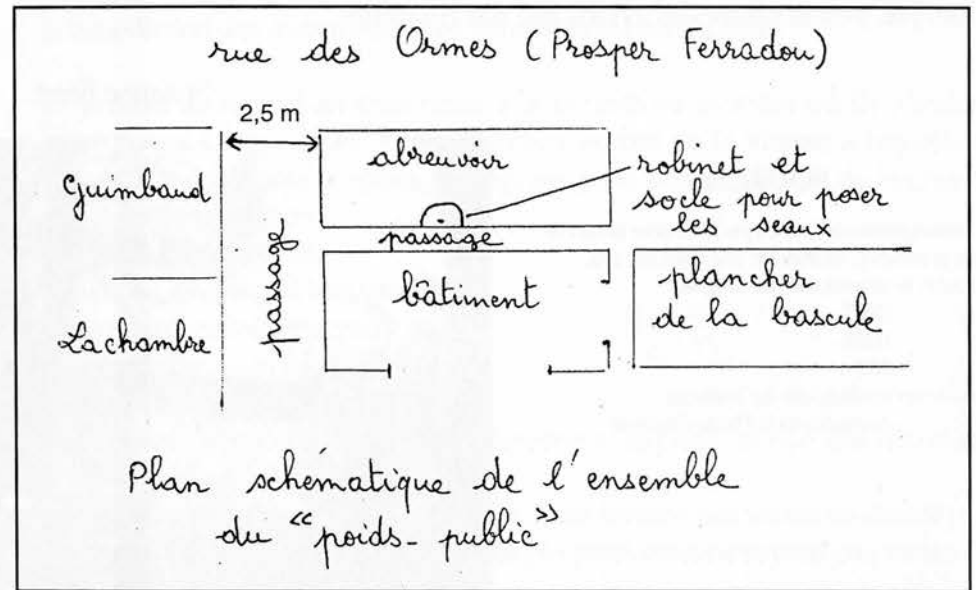 rue des Ormes (Prosper Ferradou)
2,5 m
Guimbaud
abreuvoir
robinet et
socle pour poser
les seaux
passage
passage
bâtiment
plancher
de la bascule
Lachambre
Plan schématique de l'ensemble
du « poids-public »